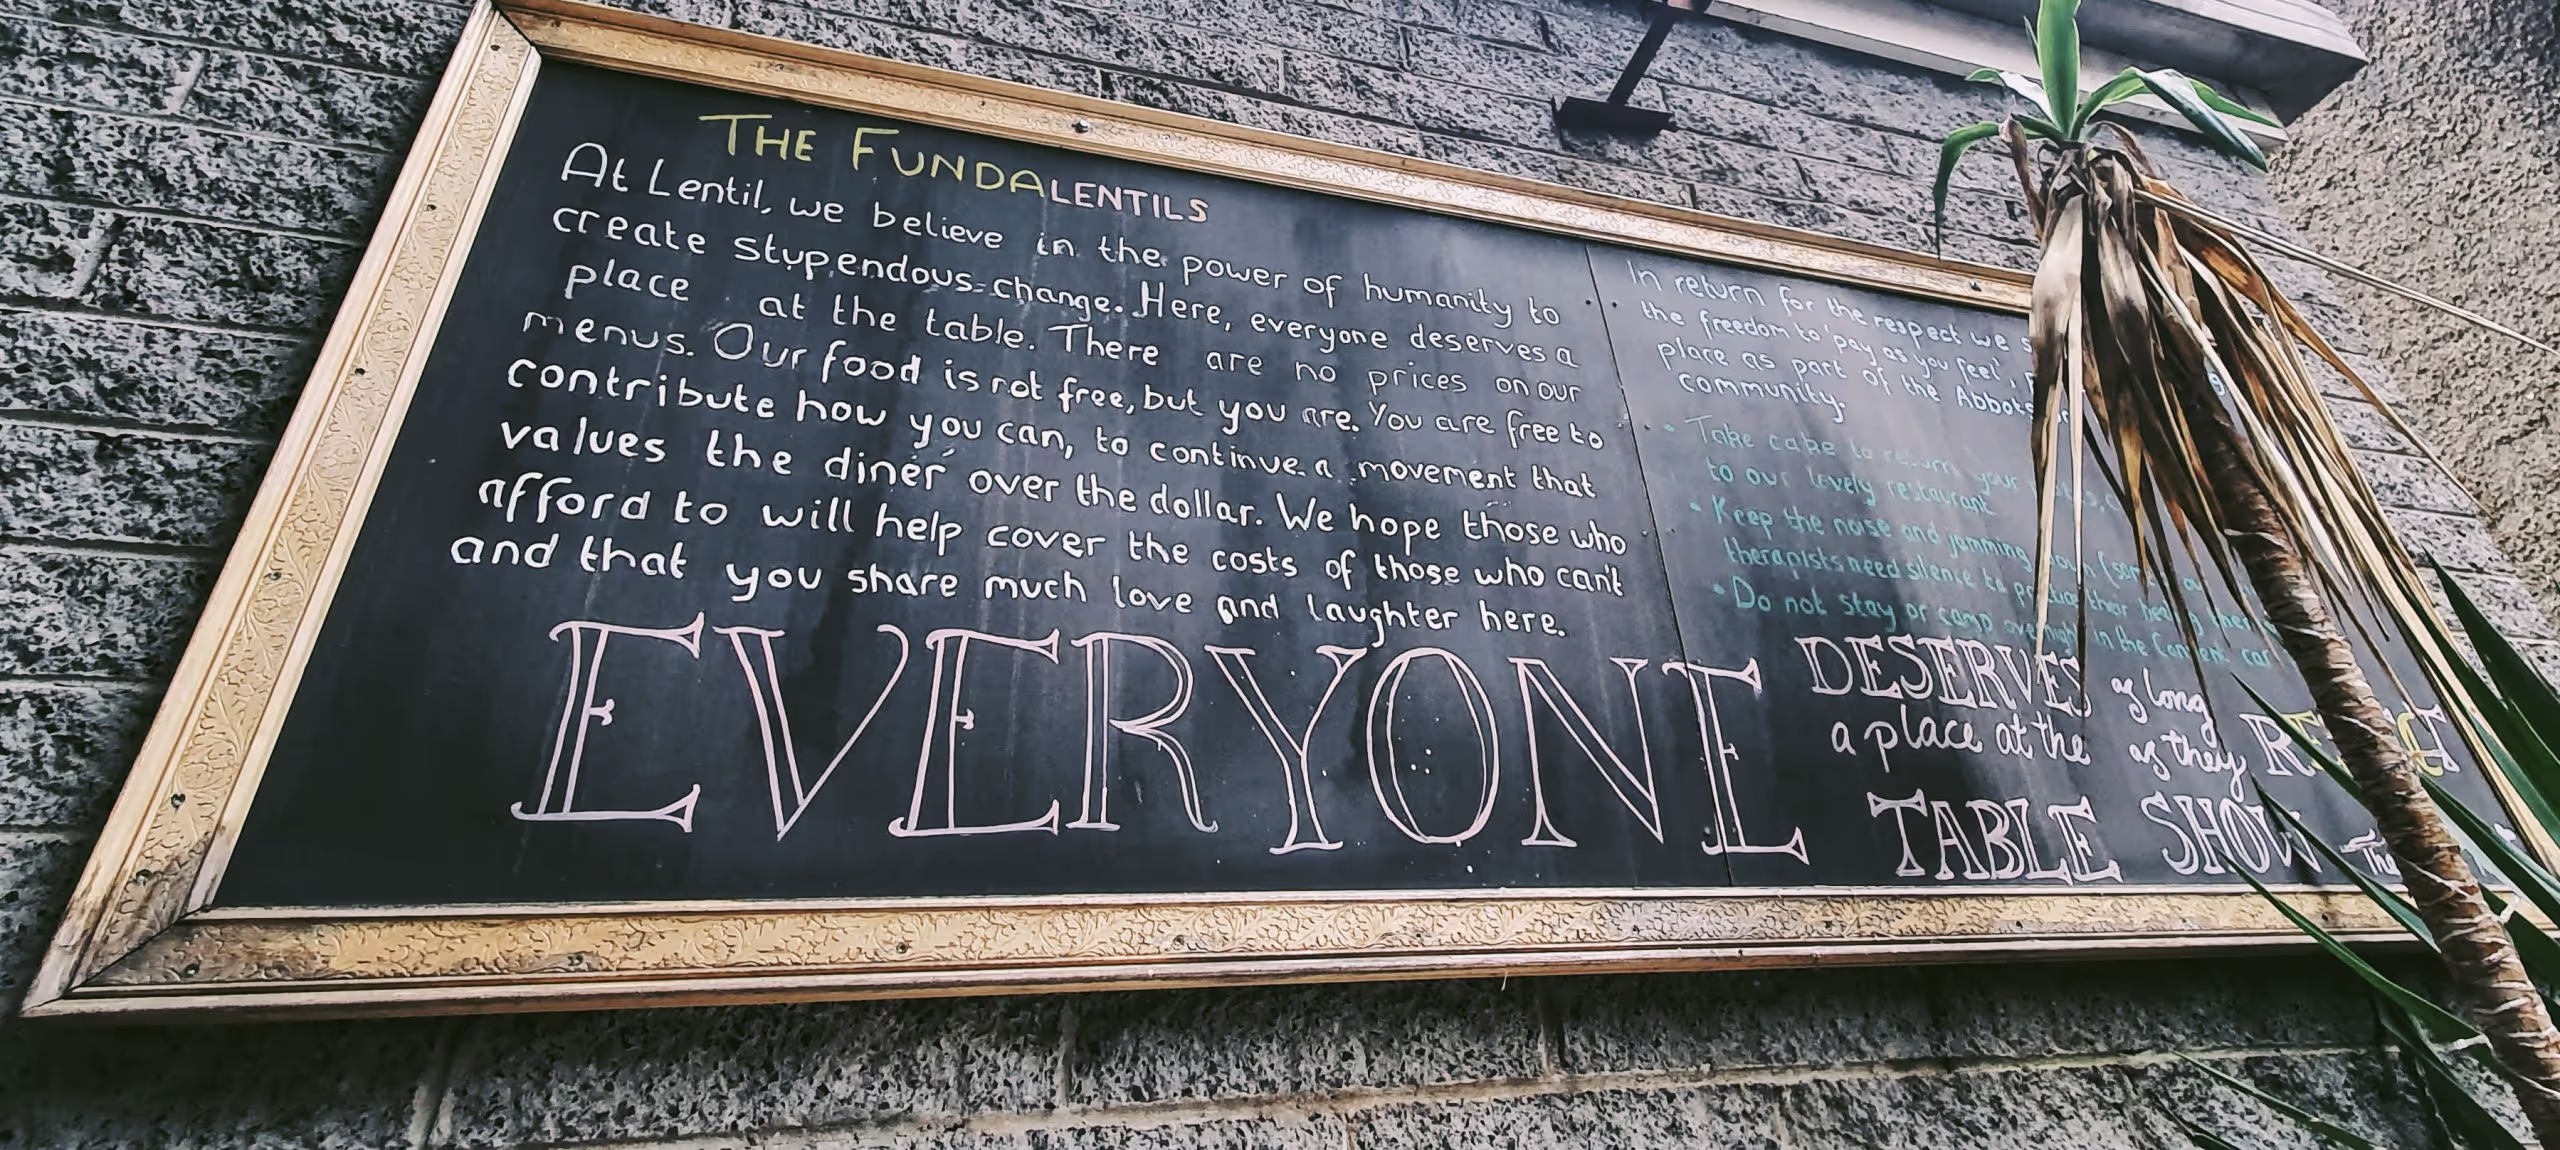 THE FUNDALENTILS
At Lentil, we believe in the power of humanity to
create stupendous change. Here, everyone deserves a
place at the table. There are no prices on our
menus. Our food is not free, but you are. You are free to
contribute how you can, to continue a movement that
values the diner over the dollar. We hope those who
afford to will help cover the costs of those who can't
and that you share much love and laughter here.
In return for the respect we
the freedom to 'pay as you feel',
place as part of the
community.
• Take care to return your
to our lovely restaurant
• Keep the noise and jamming
therapists need silence to practice their healing
• Do not stay or camp overnight in the Convent car
EVERYONE DESERVES
a place at the
TABLE
as long
as they
SHOW